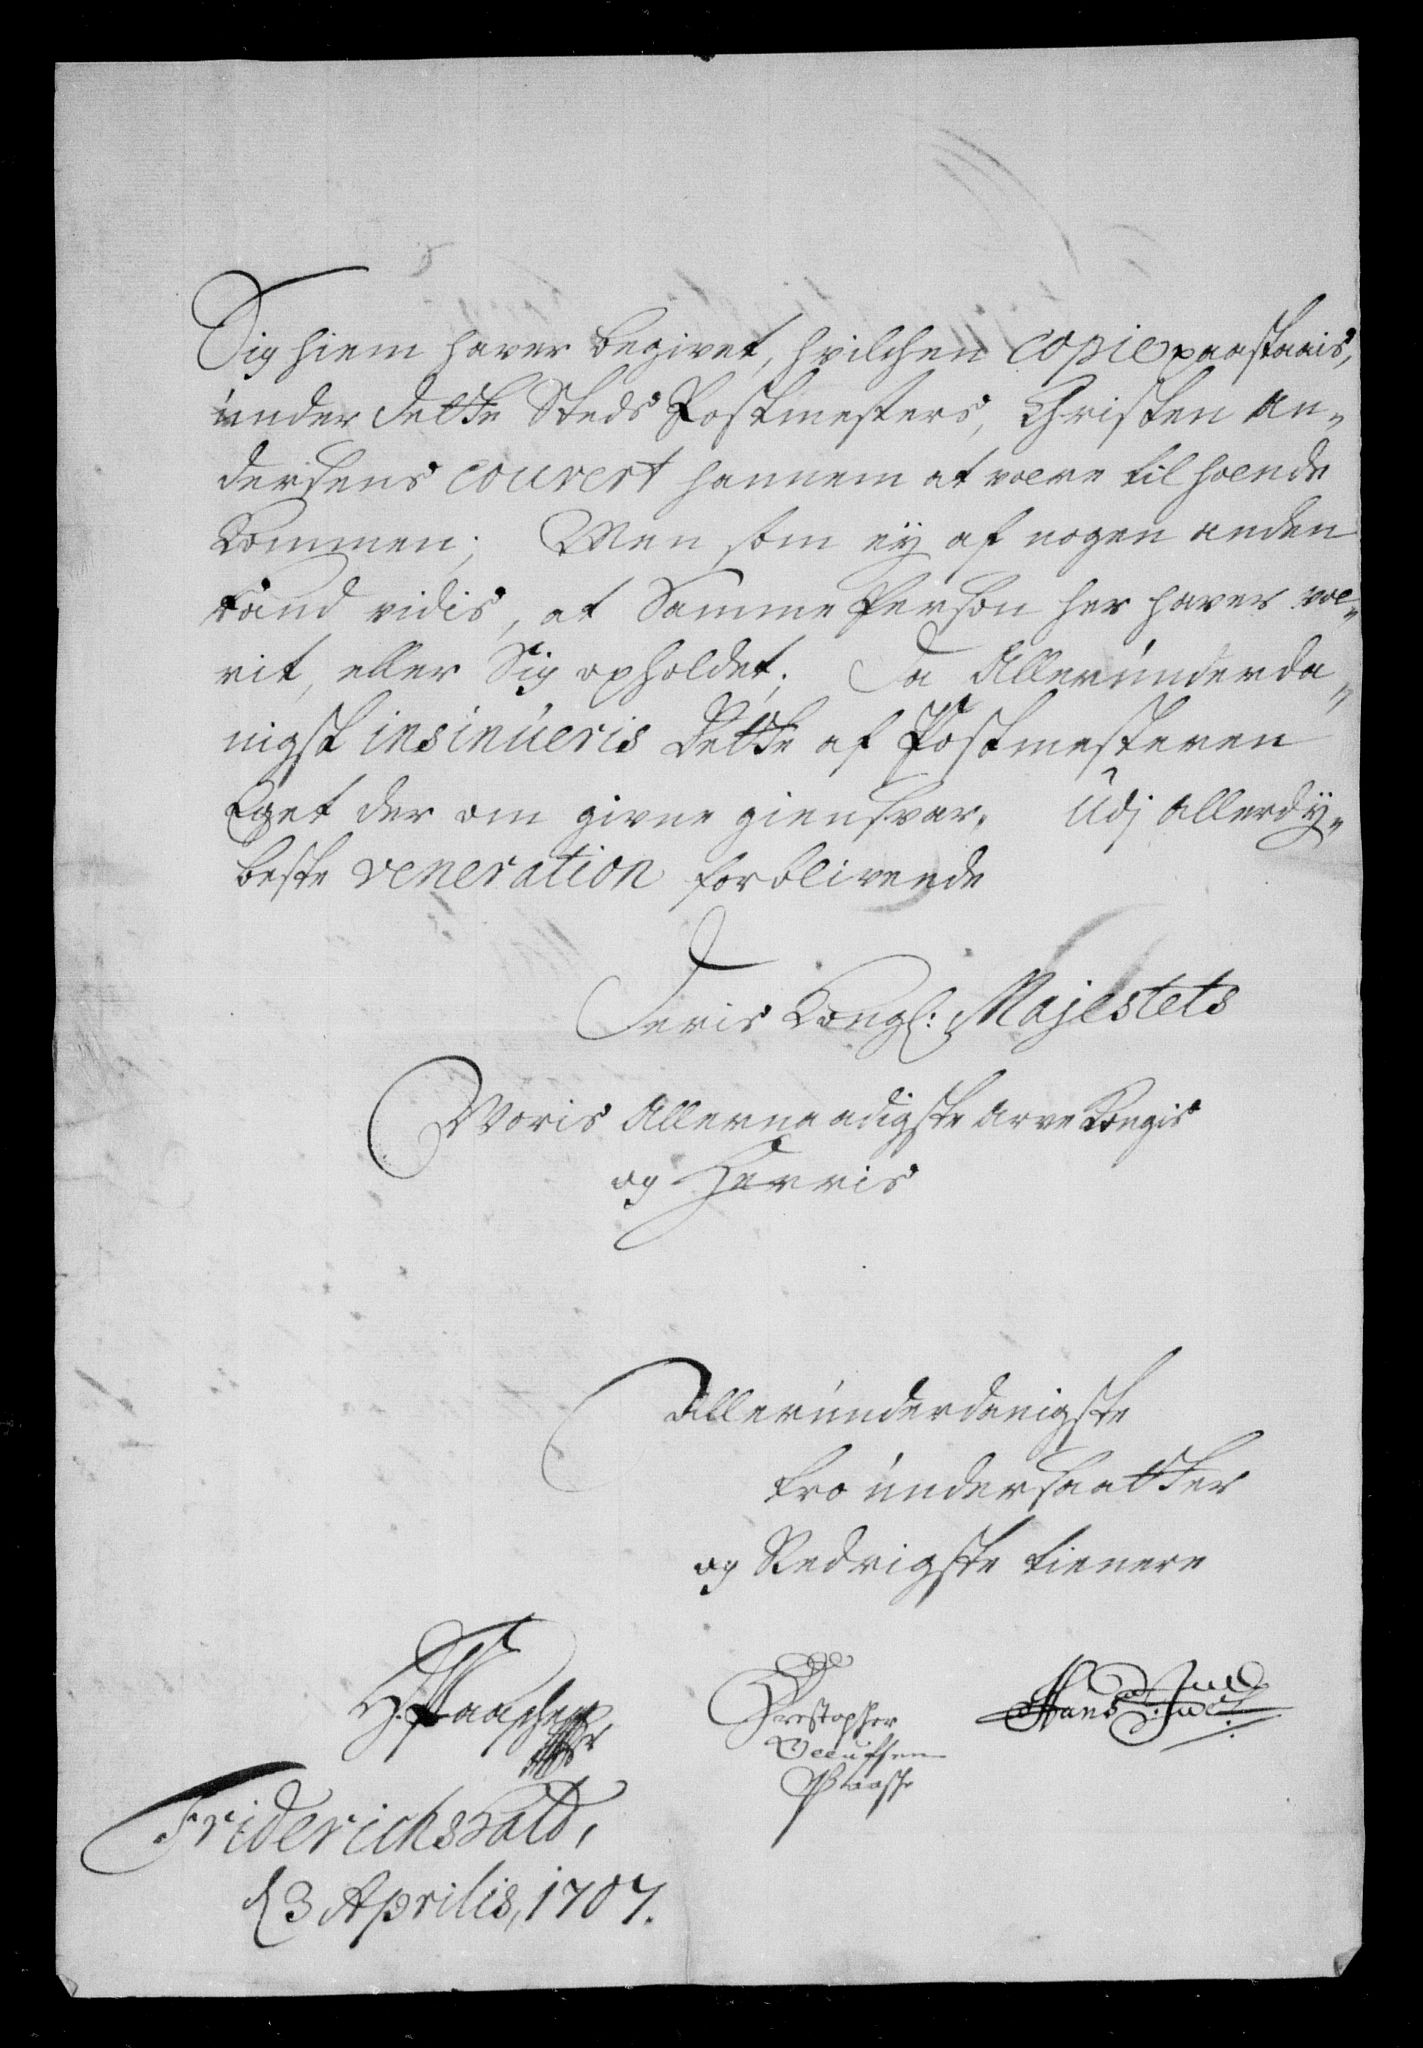 Sig hiem haver begivet, hvilchen copie paastaais,
under dette Steds Postmesters, Christen An-
dersens couvert hannem at være til hænde
Kommen; Men som ey af nogen anden
kand vidis, at Samme Person her haver væ-
rit, eller Sig opholdet; Da Allerunderda-
nigst insinueris Dette af Postmesteren
Eget der om givne giensvar. Udj allerdy-
beste veneration forblivende
Deris Kongl: Majestets
Woris Allernaadigste Arve Kongis
og Herris
Allerunderdanigste
tro undersaatter
og Nedrigste tienere
Christopher
Hans
Friderichshald,
d 3 Aprilis, 1707.